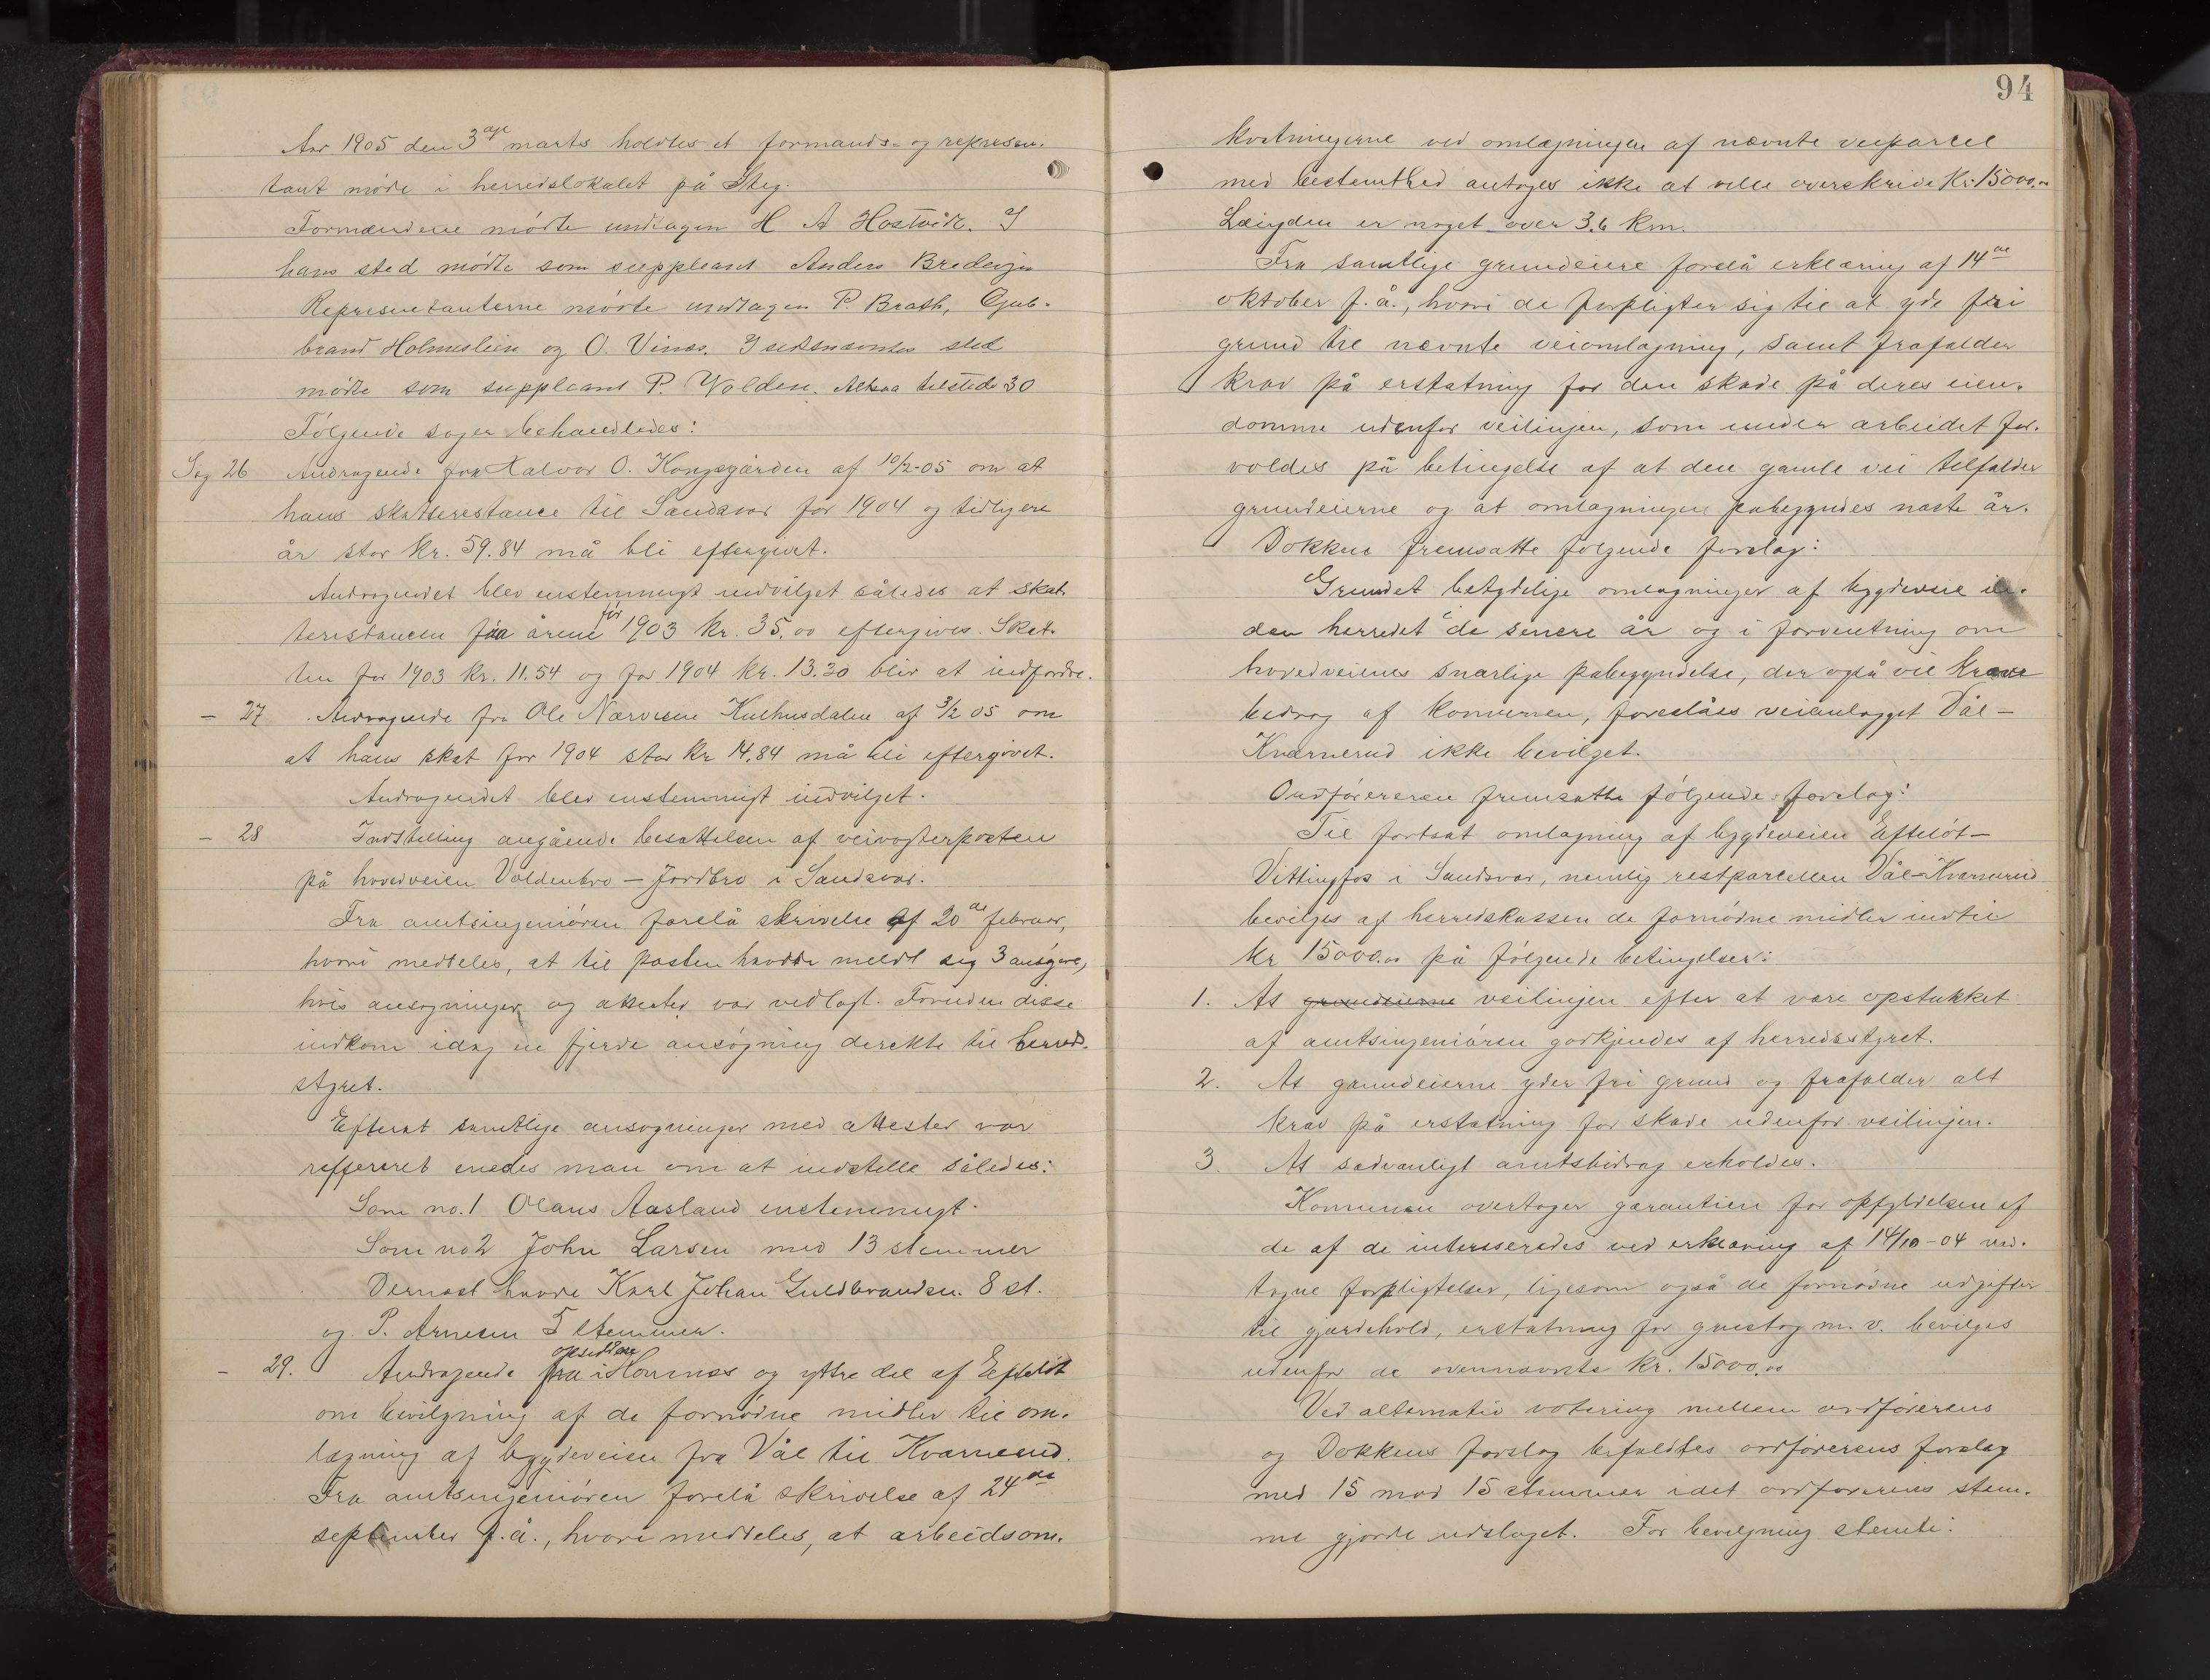 Aar 1905 den 3die marts holdtes et formands- og represen-
tant møde i herredslokalet på Steg.
Formændene mødte undtagen H A Hostvedt. I
hans sted mødte som suppleant Anders Bredesen
Representanterne mødte undtagen P. Brath, Gub-
brand Holmeslien og O. Vinæs. I sidstnævntes sted
mødte som suppleant P. Volden. Altsaa tilstede 30
Følgende sager behandledes:
Sag 26 Andragende fra Halvor O. Kongsgården af 10/2-05 om at
hans skatterestance til Sandsvær for 1904 og tidligere
år stor kr. 59.84 må bli eftergivet.
Andragendet blev enstemmigt indvilget således at skat-
terestancen fra årene før 1903 kr. 35,00 eftergives. Skat-
ten for 1903 kr. 11.54 og for 1904 kr. 13.30 blir at indfordre.
- 27 Andragende fra Ole Narvesen Kulhusdalen af 3/2 05 om
at hans skat for 1904 stor kr 14.84 må bli eftergivet.
Andragendet blev enstemmigt indvilget.
- 28 Indstilling angående besættelsen af veivogterposten
på hovedveien Voldenbro - Jordbro i Sandsvær.
Fra amtsingeniøren forelå skrivelse af 20de februar,
hvori meddeles, at til posten havde meldt sig 3 ansøgere,
hvis ansøgninger og attester var vedlagt. Foruden disse
indkom idag en fjerde ansøgning direkte til herreds-
styret.
Efterat samtlige ansøgninger med attester var
reffereret enedes man om at indstille således:
Som no. 1 Olaus Aasland enstemmigt.
Som no 2 John Larsen med 13 stemmer
Dernæst havde Karl Johan Guldbrandsen 8 st.
og P. Arnesen 5 stemmer.
- 29. Andragende fra opsiddere i Hornæs og yttre del af Efteløt
om bevilgning af de fornødne midler til om-
lægning af bygdeveien fra Vål til Kværnerud.
Fra amtsingeniøren forelå skrivelse af 24de
september f.å., hvori meddeles, at arbeidsom-
94
kostningerne ved omlægningen af nævnte veiparcel
med bestemthed antages ikke at ville overskride Kr. 15000,00
Længden er noget over 3,6 km.
Fra samtlige grundeiere forelå erklæring af 14de
oktober f.å., hvori de forpligter sig til at yde fri
grund til nævnte veiomlægning, samt frafalder
krav på erstatning for den skade på deres eien-
domme udenfor veilinjen, som under arbeidet for-
voldes på betingelse af at den gamle vei tilfalder
grundeierne og at omlægningen påbegyndes næste år.
Dokken fremsatte følgende forslag:
Grundet betydelige omlægninger af bygdeveie in-
den herredet i de senere år og i forventning om
hovedveienes snarlige påbegyndelse, der også vil kræve
bidrag af kommunen, foreslåes veianlægget Vål -
Kværnerud ikke bevilget.
Ordføreren fremsatte følgende forslag:
Til fortsat omlægning af bygdeveien Efteløt -
Vittingfos i Sandsvær, nemlig restparcellen Vål-Kværnerud
bevilges af herredskassen de fornødne midler indtil
kr 15000.00 på følgende betingelser:
1. At grundeierne veilinjen efter at være opstukket
af amtsingeniøren godkjendes af herredsstyret.
2. At grundeierne yder fri grund og frafalder alt
krav på erstatning for skade udenfor veilinjen.
3. At sædvanligt amtsbidrag erholdes.
Kommunen overtager garantien for opfyldelsen af
de af de interesserede ved erklæring af 14/10-04 ved-
tagne forpligtelser, ligesom også de fornødne udgifter
til gjærdehold, erstatning for grustag m. v. bevilges
udenfor de ovennævnte kr. 15000.00
Ved alternativ votering mellem ordførerens
og Dokkens forslag bifaldtes ordførerens forslag
med 15 mod 15 stemmer idet ordførerens stem-
me gjorde udslaget. For bevilgning stemte: